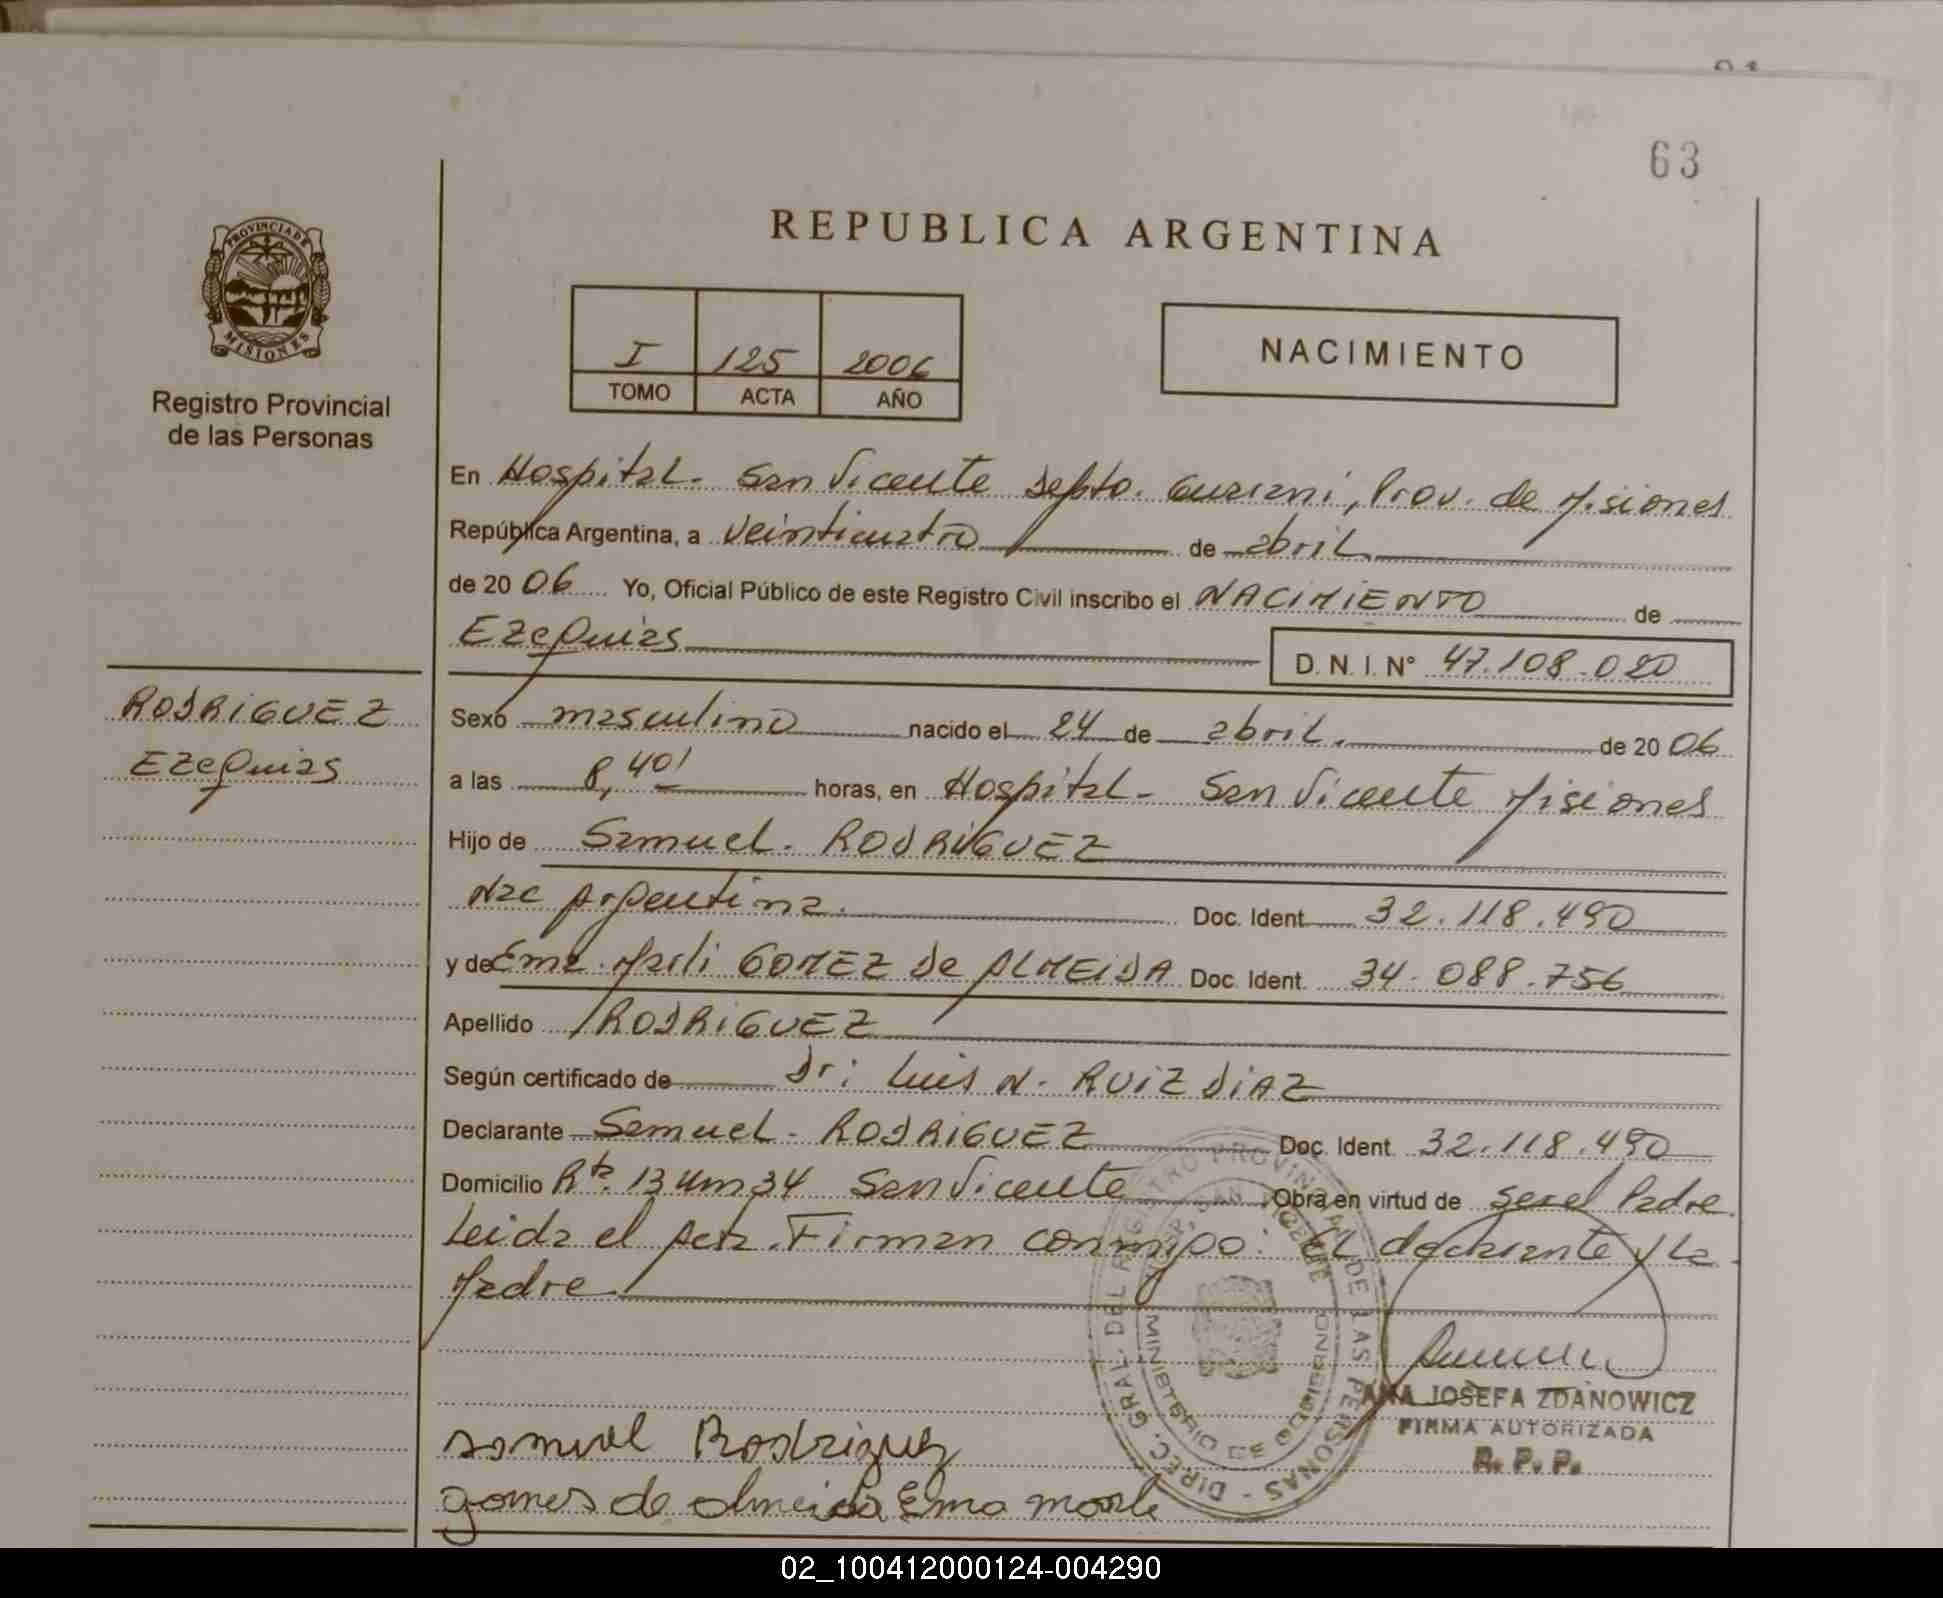 63
REPUBLICA ARGENTINA
PROVINCIA DE
MISIONES
Registro Provincial
de las Personas
I 125 2006
TOMO ACTA AÑO
NACIMIENTO
En Hospital - San Vicente Depto. Guarani, Prov. de Misiones
República Argentina, a veinticuatro de abril
de 20 06 Yo, Oficial Público de este Registro Civil inscribo el NACIMIENTO de
Ezequias D. N. I. N° 47.108.020
RODRIGUEZ
Ezequias
Sexo masculino nacido el 24 de abril. de 20 06
a las 8,40' horas, en Hospital - San Vicente Misiones
Hijo de Samuel. RODRIGUEZ
Nac Argentina. Doc. Ident. 32.118.490
y de Ema. Marli GOMEZ De ALMEIDA Doc. Ident. 34.088.756
Apellido RODRIGUEZ
Según certificado de Dr: Luis N. RUIZ DIAZ
Declarante Samuel - RODRIGUEZ Doc. Ident. 32.118.490
Domicilio Rta. 13 Km 34 San Vicente Obra en virtud de ser el Padre
Leida el Acta. Firman conmigo: El declarante y La
Madre
DIREC. GRAL. DEL REGISTRO PROVINCIAL DE LAS PERSONAS
MINISTERIO DE GOBIERNO
ANA JOSEFA ZDANOWICZ
FIRMA AUTORIZADA
R. P. P.
samuel Rodriguez
gomes de almeida Ema marli
02_100412000124-004290